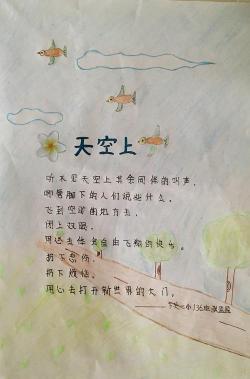 天空上
听不见天空上其余同伴的叫声,
哪管脚下的人们说些什么,
飞到空旷的地方去,
闭上双眼,
用心去体会自由飞翔的快乐。
抛下忧伤,
抛下烦恼,
用心去打开新世界的大门。
小136班